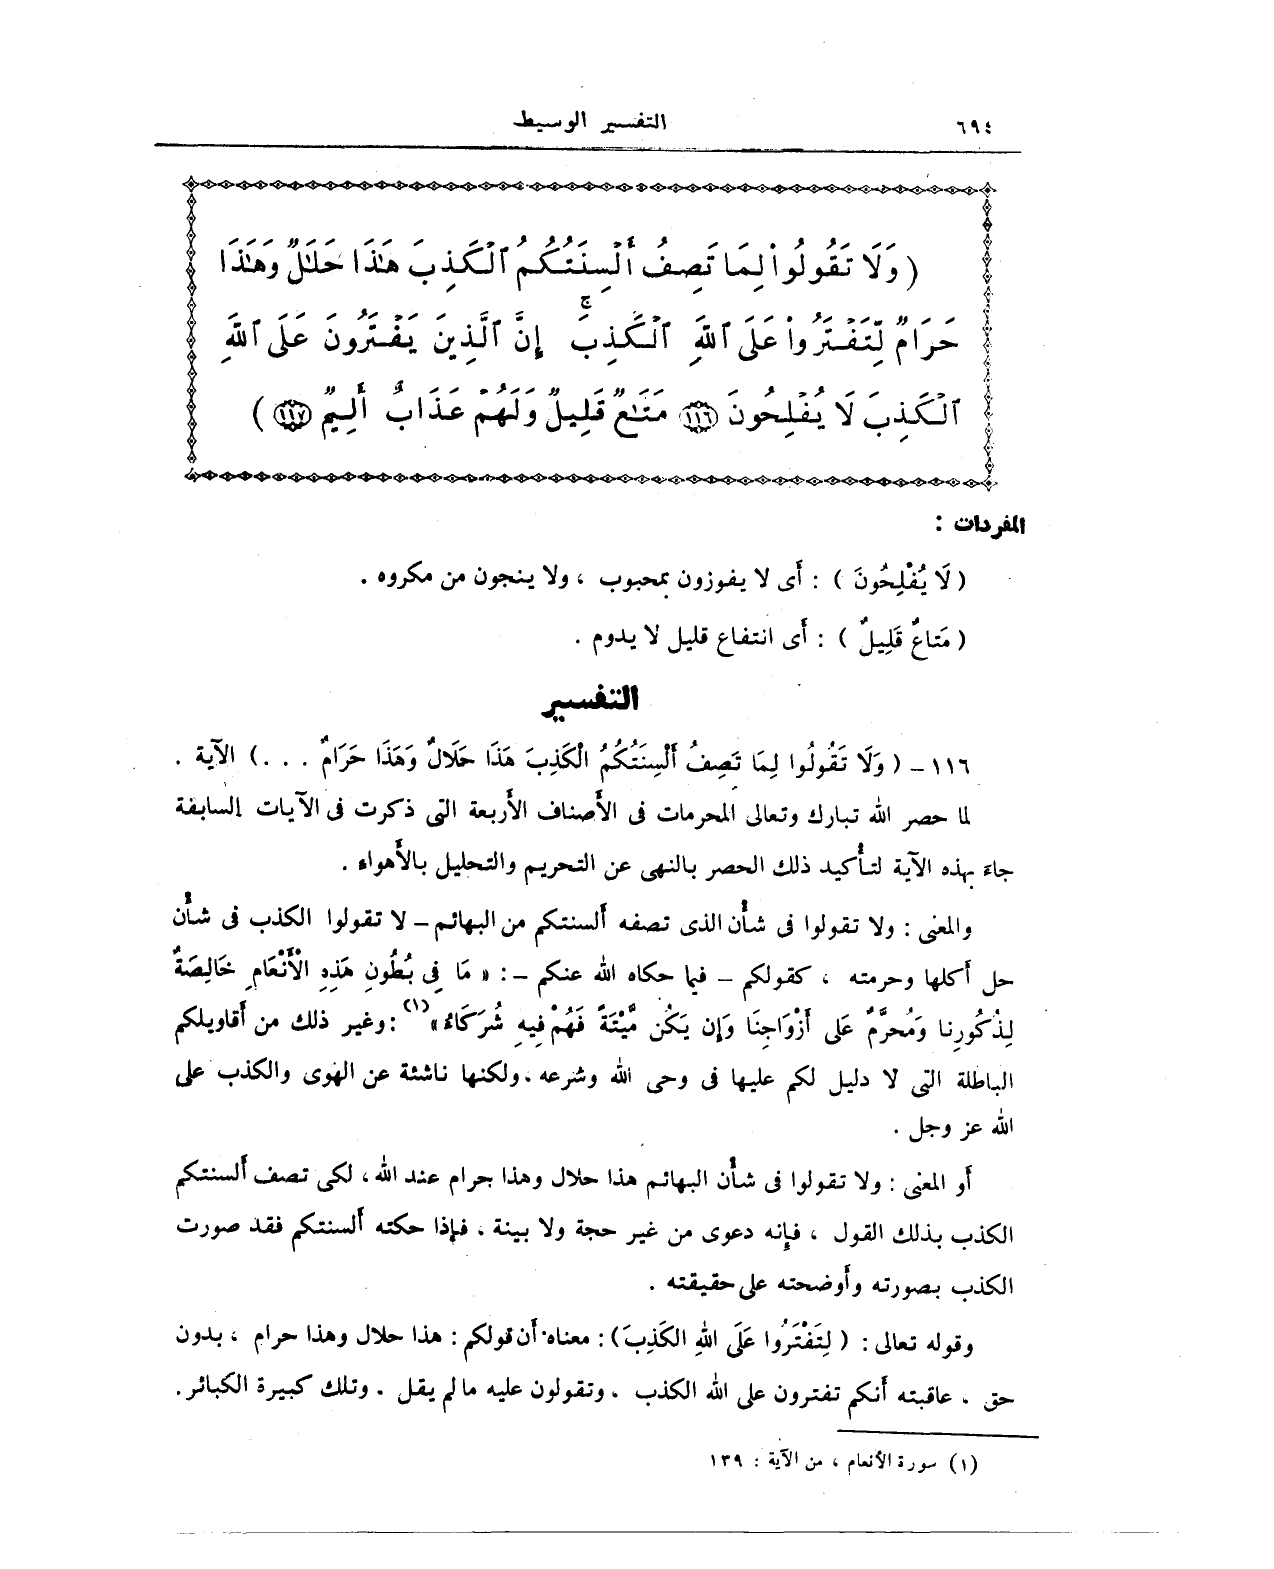 ٦٩٤
التفسير الوسيط
( وَلَا تَقُولُوا۟ لِمَا تَصِفُ أَلۡسِنَتُكُمُ ٱلۡكَذِبَ هَٰذَا حَلَٰلٌ وَهَٰذَا
حَرَامٌ لِّتَفۡتَرُوا۟ عَلَى ٱللَّهِ ٱلۡكَذِبَۚ إِنَّ ٱلَّذِينَ يَفۡتَرُونَ عَلَى ٱللَّهِ
ٱلۡكَذِبَ لَا يُفۡلِحُونَ ١١٦ مَتَٰعٌ قَلِيلٌ وَلَهُمۡ عَذَابٌ أَلِيمٌ ١١٧ )
المفردات :
( لَا يُفْلِحُونَ ) : أَى لا يفوزون بمحبوب ، ولا ينجون من مكروه .
( مَتاعٌ قَلِيلٌ ) : أَى انتفاع قليل لا يدوم .
التفسير
١١٦ – ( وَلَا تَقُولُوا لِمَا تَصِفُ أَلْسِنَتُكُمُ الْكَذِبَ هَذَا حَلَالٌ وَهَذَا حَرَامٌ . . .) الآية .
لما حصر الله تبارك وتعالى المحرمات فى الأَصناف الأَربعة التى ذكرت فى الآيات السابقة
جاءَ بهذه الآية لتأْكيد ذلك الحصر بالنهى عن التحريم والتحليل بالأَهواء .
والمعنى : ولا تقولوا فى شأْن الذى تصفه أَلسنتكم من البهائم – لا تقولوا الكذب فى شأْن
حل أَكلها وحرمته ، كقولكم – فيما حكاه الله عنكم – : « مَا فِى بُطُونِ هَذِهِ الْأَنْعَامِ خَالِصَةٌ
لِذُكُورِنا وَمُحرَّمٌ عَلَى أَزْوَاجِنَا وَإِن يَكُن مَّيْتَةً فَهُمْ فِيهِ شُرَكَاءُ »(١) : وغير ذلك من أَقاويلكم
الباطلة التى لا دليل لكم عليها فى وحى الله وشرعه . ولكنها ناشئة عن الهوى والكذب على
الله عز وجل .
أَو المعنى : ولا تقولوا فى شأْن البهائم هذا حلال وهذا حرام عند الله ، لكى تصف أَلسنتكم
الكذب بذلك القول ، فإِنه دعوى من غير حجة ولا بينة . فإِذا حكته أَلسنتكم فقد صورت
الكذب بصورته وأَوضحته على حقيقته .
وقوله تعالى : ( لِتَفْتَرُوا عَلَى اللهِ الكَذِبَ ) : معناه أَن قولكم : هذا حلال وهذا حرام ، بدون
حق . عاقبته أَنكم تفترون على الله الكذب . وتقولون عليه ما لم يقل . وتلك كبيرة الكبائر .
(١) سورة الأنعام ، من الآية : ١٣٩